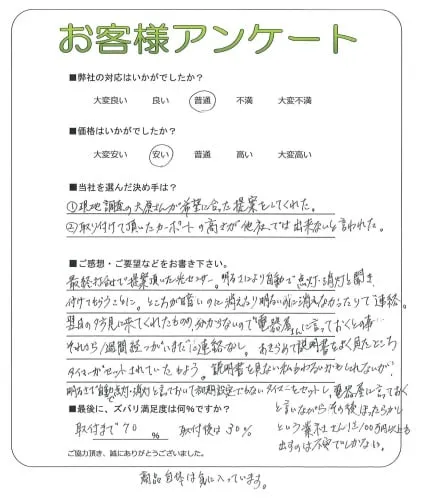 お客様アンケート
■弊社の対応はいかがでしたか？
大変良い 良い 普通 不満 大変不満
■価格はいかがでしたか？
大変安い 安い 普通 高い 大変高い
■当社を選んだ決め手は？
①現地調査の大原さんが希望に合った提案をしてくれた。
②取り付けて頂いたカーポートの高さが他社では出来ないと言われた。
■ご感想・ご要望などをお書き下さい。
最終打合で提案頂いた光センサー。明るさにより自動で点灯・消灯と聞き、
付けてもらうことに。ところが暗いのに消えたり明るいのに消えなかったりで連絡。
翌日の夕方見に来てくれたものの、分からないので"電器屋さんに言っておくとの事…
それから1週間経つがいまだに連絡なし。あきらめて説明書をよく見たところ
タイマーがセットされていたもよう。説明書を見ない私もわるいかもしれないが、
明るさで自動点灯・消灯と言っておいて初期設定でもないタイマーをセットし、電器屋に言っておく
と言いながらその後ほったらかし
という業社さんに100万円以上も
出すのは不安でしかない。
■最後に、ズバリ満足度は何％ですか？
取付まで70 % 取付後は30%
ご協力頂き、誠にありがとうございました。
商品自体は気に入っています。